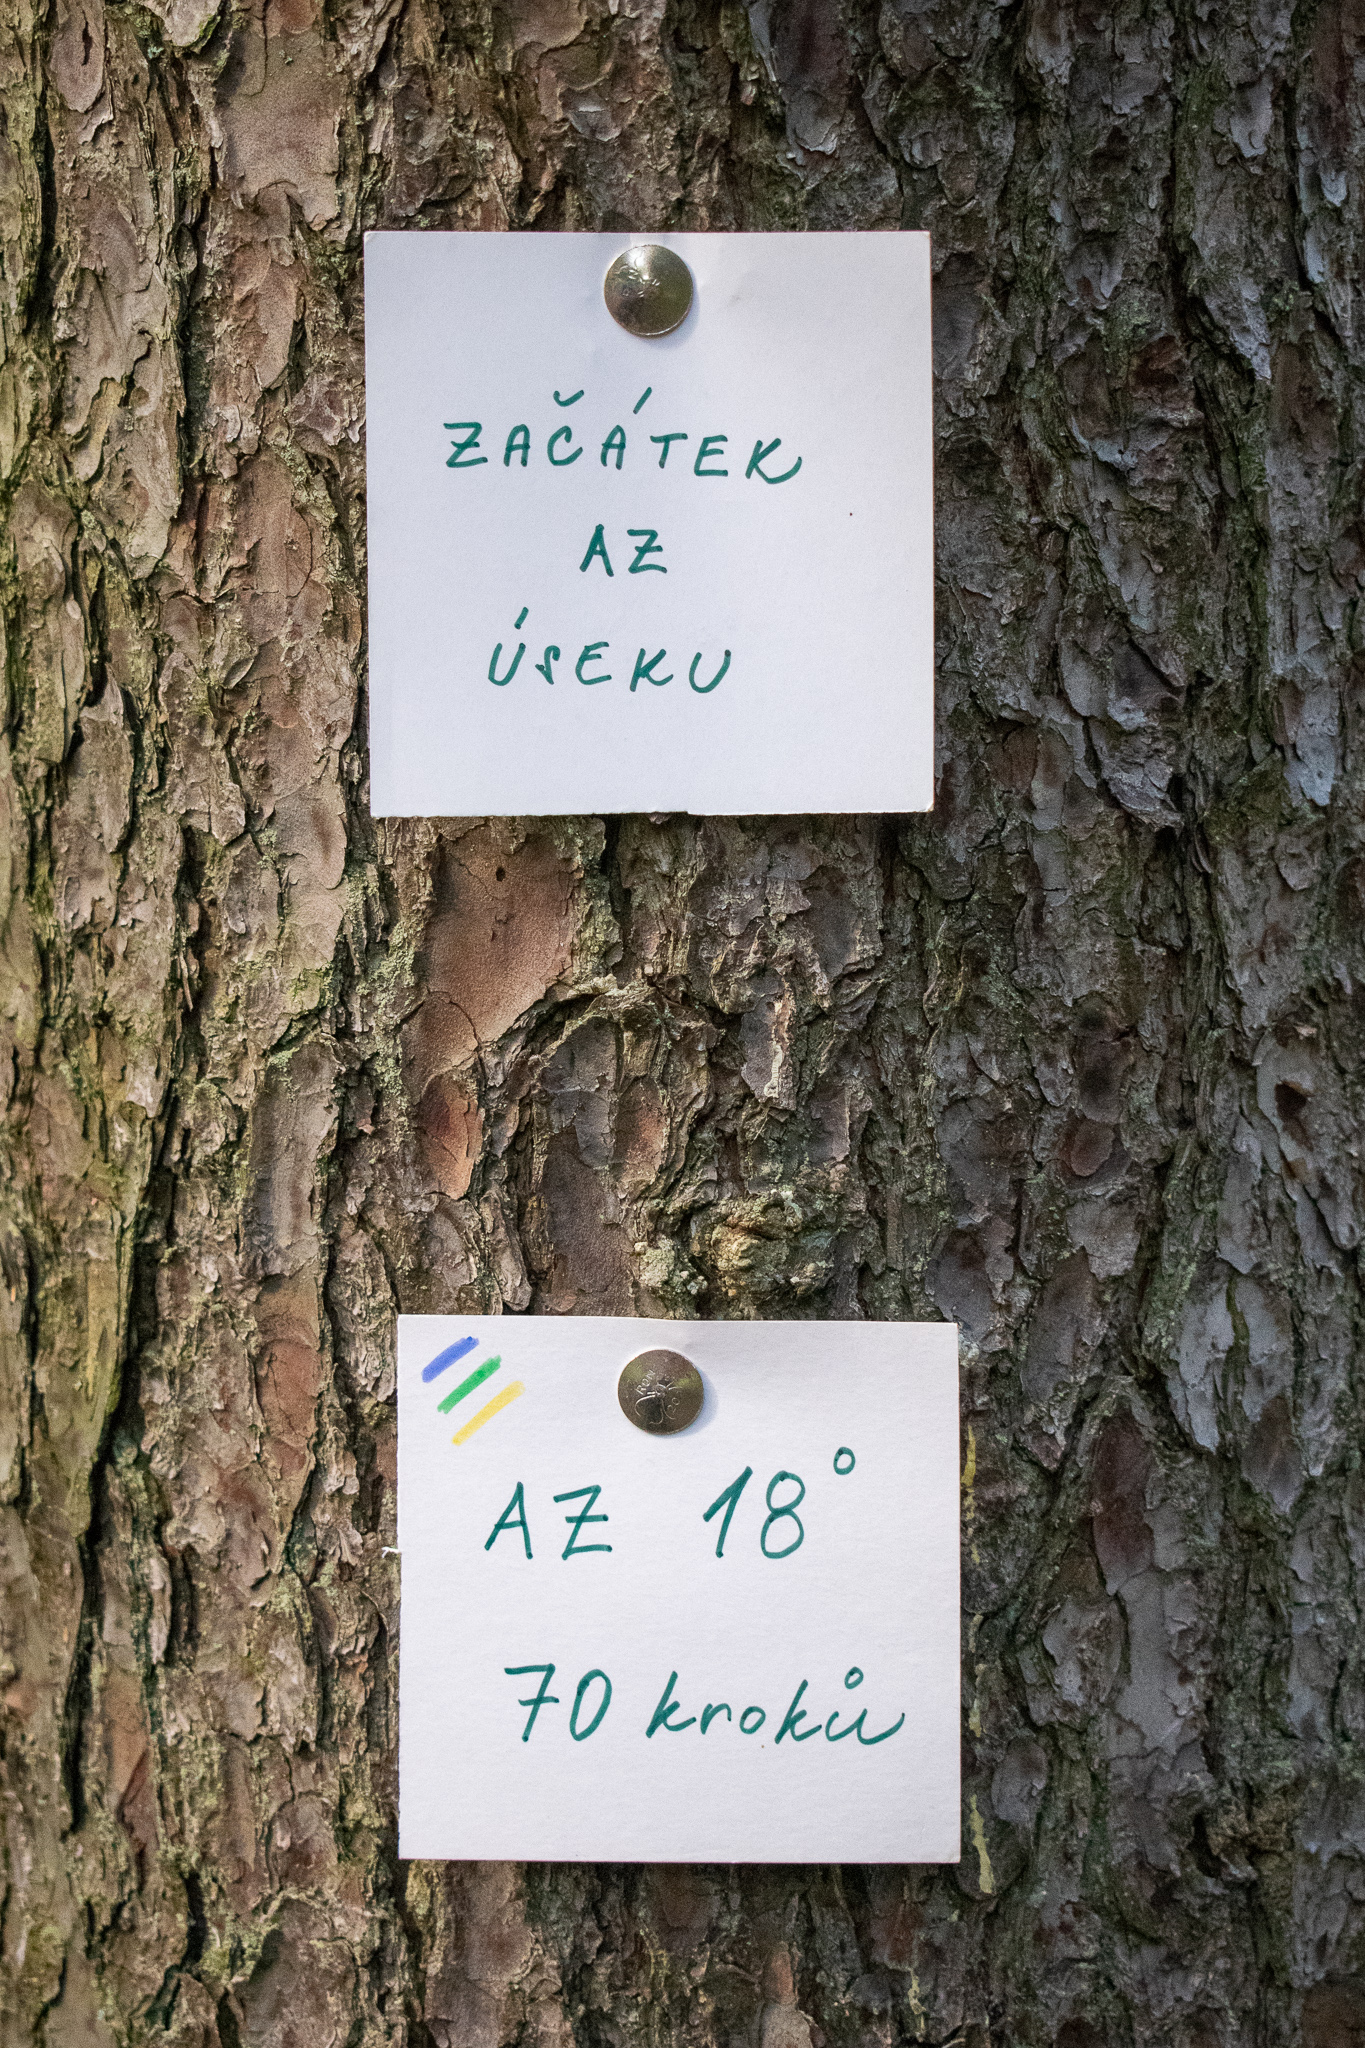 ZAČÁTEK
AZ
ÚSEKU
AZ 18°
70 kroků